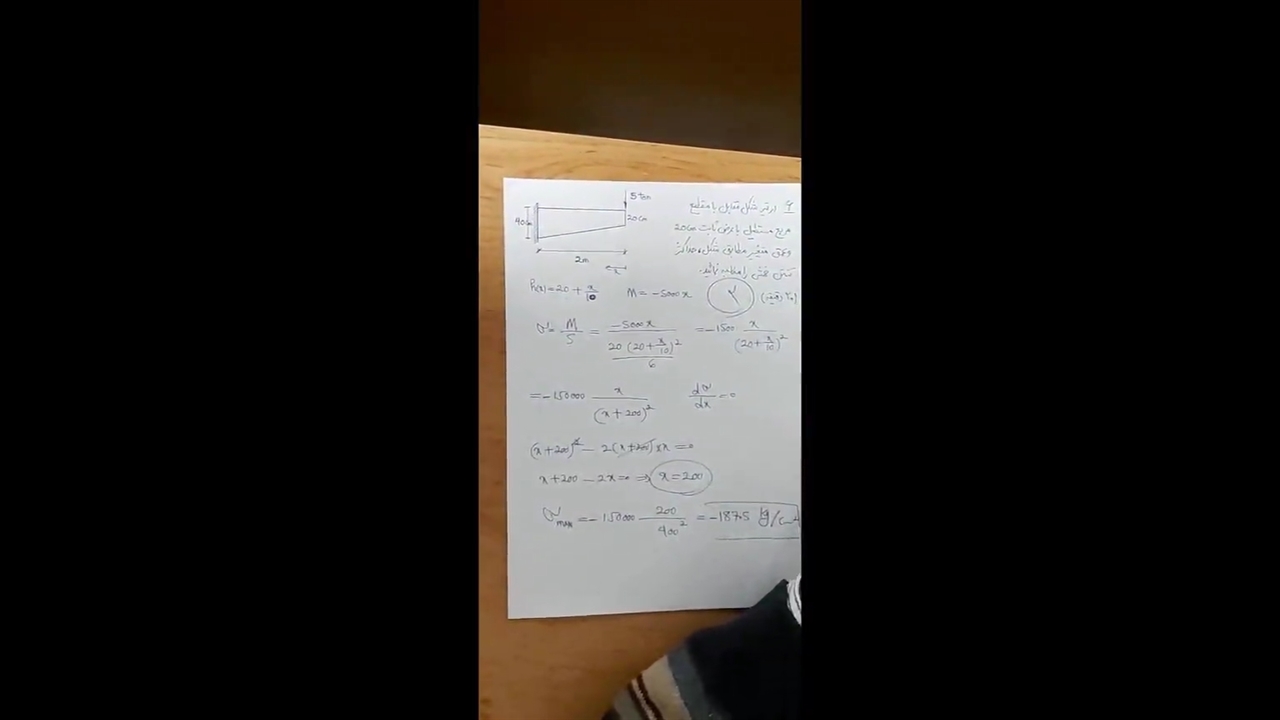 5 ton
40cm
20cm
2m
x
در تیر شکل مقابل با مقطع
مربع مستطیل با عرض ثابت 20cm
و عمق متغیر مطابق شکل، حداکثر
تنش خمشی را محاسبه نمائید.
h(x) = 20 + x/10
M = -5000x
σ = M/S = -5000x / (20(20 + x/10)²/6) = -1500 x/(20 + x/10)²
= -150000 x/(x + 200)²
dσ/dx = 0
(x + 200)² - 2(x + 200) x = 0
x + 200 - 2x = 0 ⇒ x = 200
σmax = -150000 200/400² = -187.5 kg/cm²